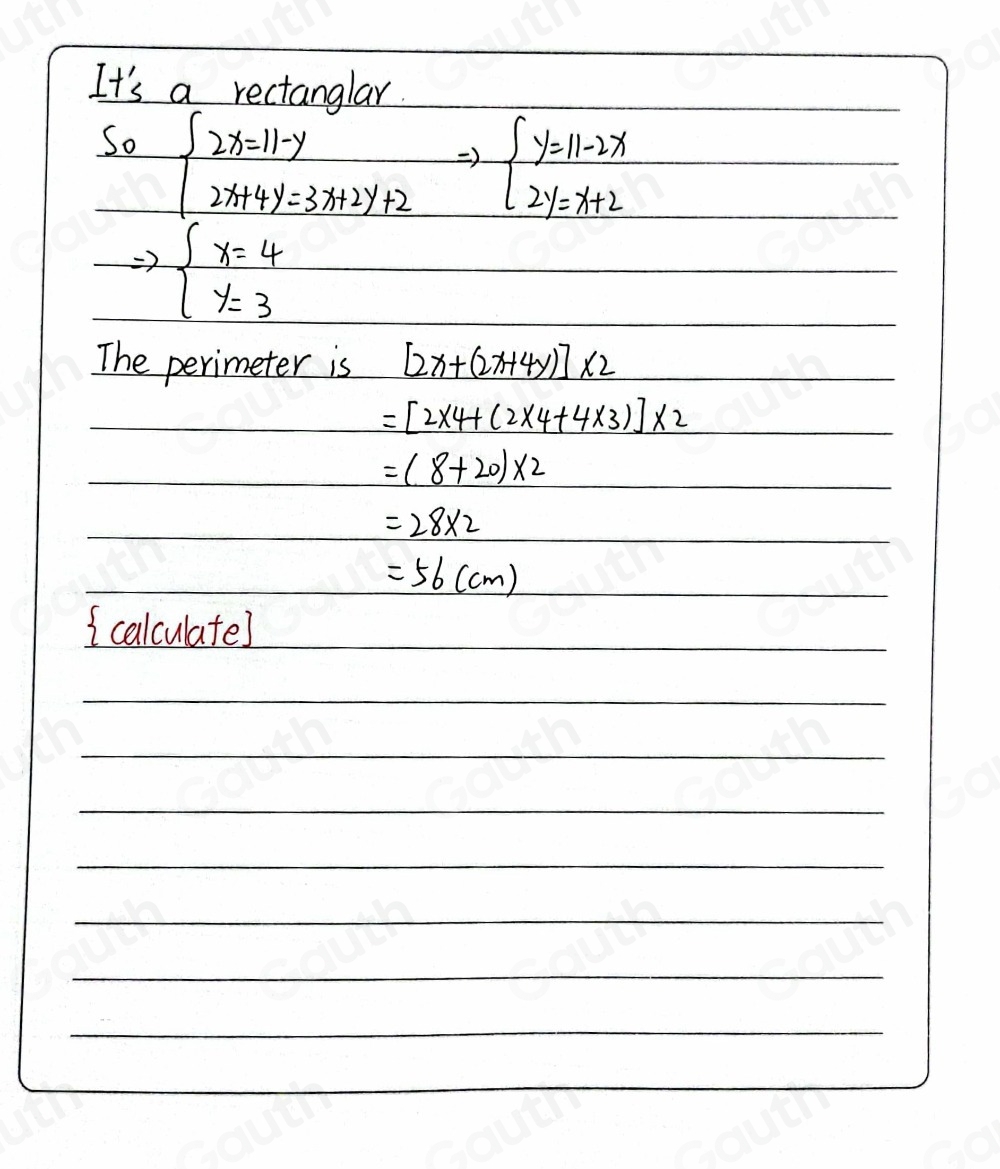 It's a rectanglar.
So { 2x=11-y => { y=11-2x
2x+4y=3x+2y+2 2y=x+2
=> { x=4
y=3
The perimeter is [2x+(2x+4y)]×2
=[2×4+(2×4+4×3)]×2
=(8+20)×2
=28×2
=56(cm)
{calculate]